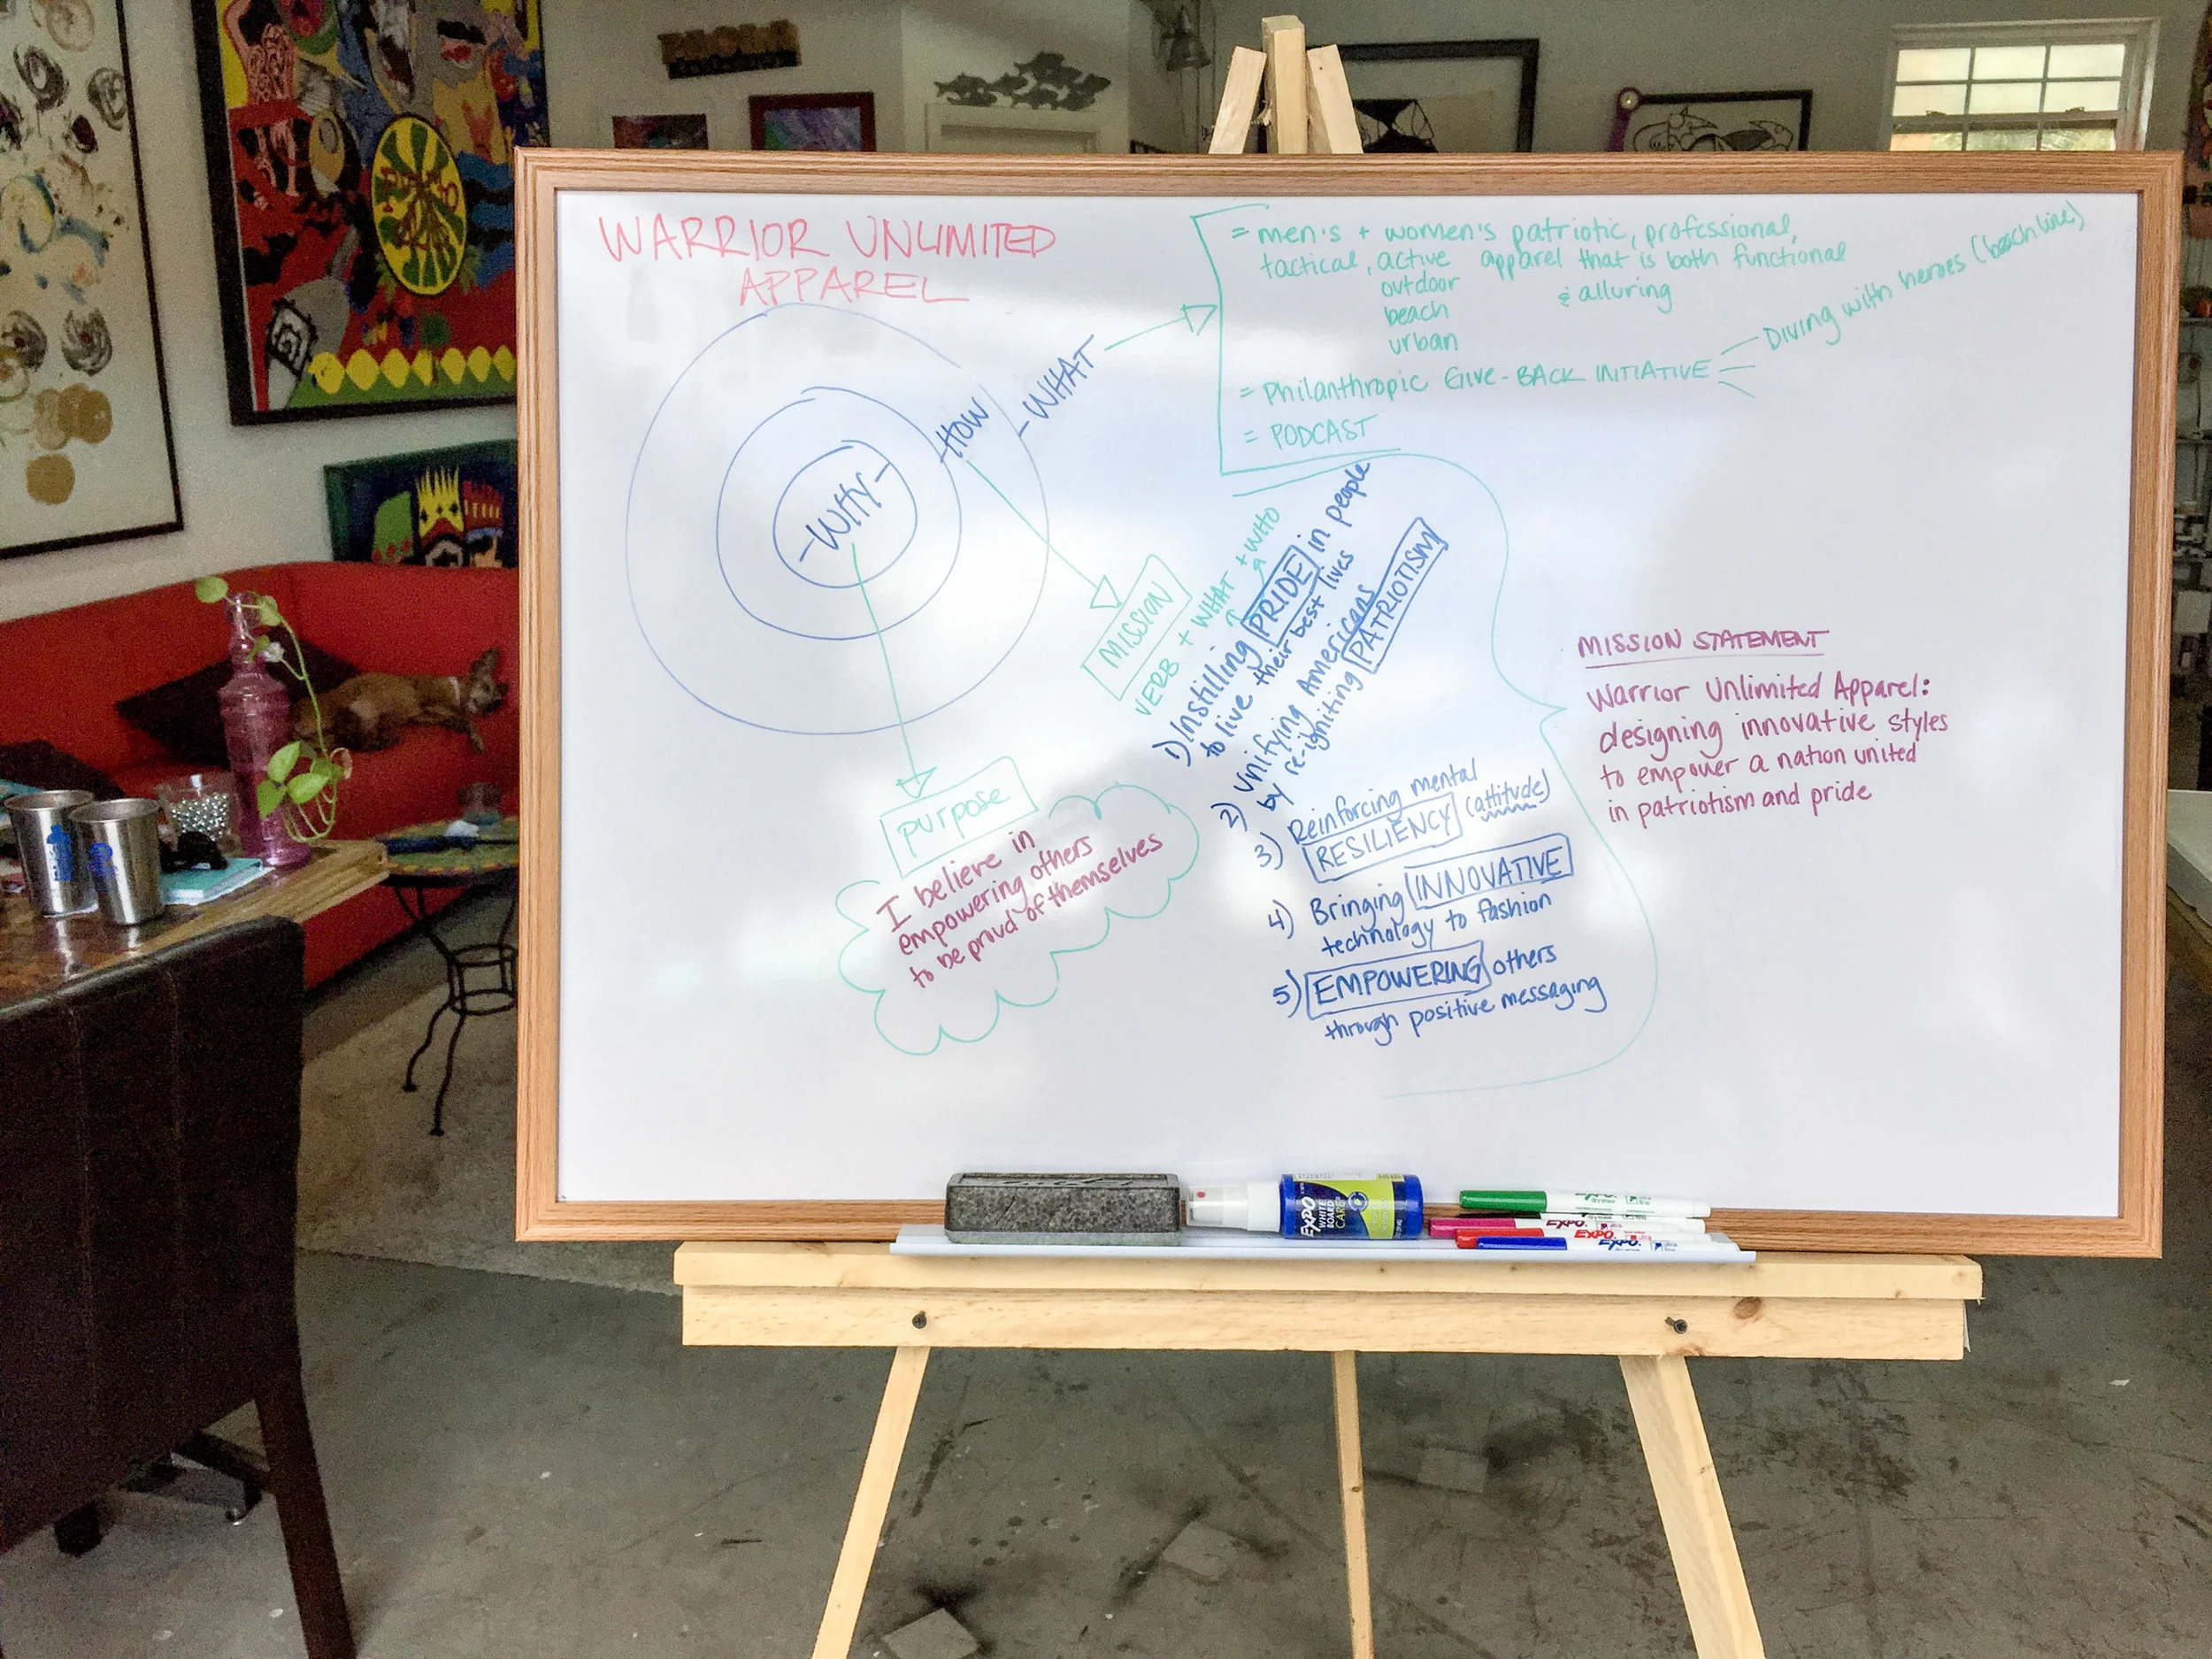 WARRIOR UNLIMITED
APPAREL
= men's + women's patriotic, professional,
tactical, active apparel that is both functional
outdoor & alluring
beach
urban
= Philanthropic Give-BACK INITIATIVE
Diving with heroes (beach line)
= PODCAST
-WHAT
-HOW
-WHY-
MISSION
VERB + WHAT + WHO
1) Instilling PRIDE in people
to live their best lives
2) Unifying Americans
by re-igniting PATRIOTISM
3) Reinforcing mental
RESILIENCY (attitude)
4) Bringing INNOVATIVE
technology to fashion
5) EMPOWERING others
through positive messaging
purpose
I believe in
empowering others
to be proud of themselves
MISSION STATEMENT
Warrior Unlimited Apparel:
designing innovative styles
to empower a nation united
in patriotism and pride
EXPO
WHITE
BOARD
CARE
EXPO.
EXPO.
EXPO.